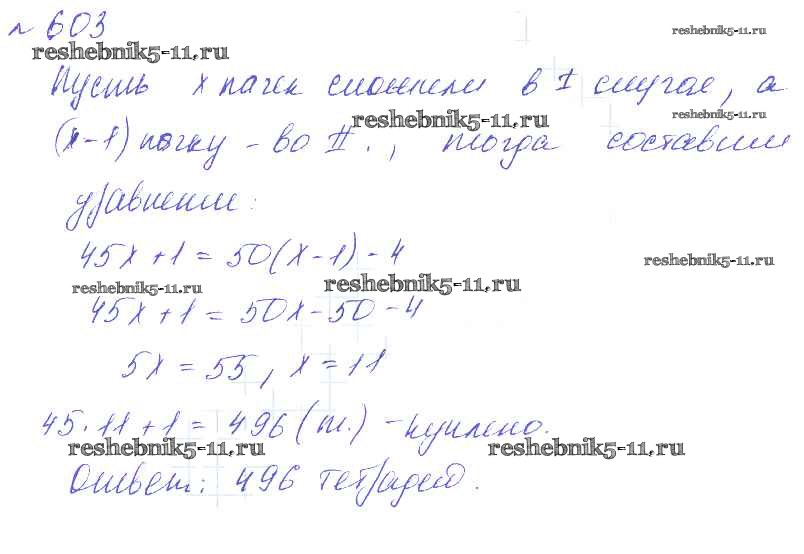 № 603
reshebnik5-11.ru
reshebnik5-11.ru
Пусть x пачек сложили в I случае, а
reshebnik5-11.ru
reshebnik5-11.ru
(x-1) пачку - во II., тогда составим
уравнение:
45x+1=50(x-1)-4
reshebnik5-11.ru
reshebnik5-11.ru
reshebnik5-11.ru
45x+1=50x-50-4
5x=55, x=11
45·11+1=496 (т.) - куплено.
reshebnik5-11.ru
reshebnik5-11.ru
Ответ: 496 тетрадей.